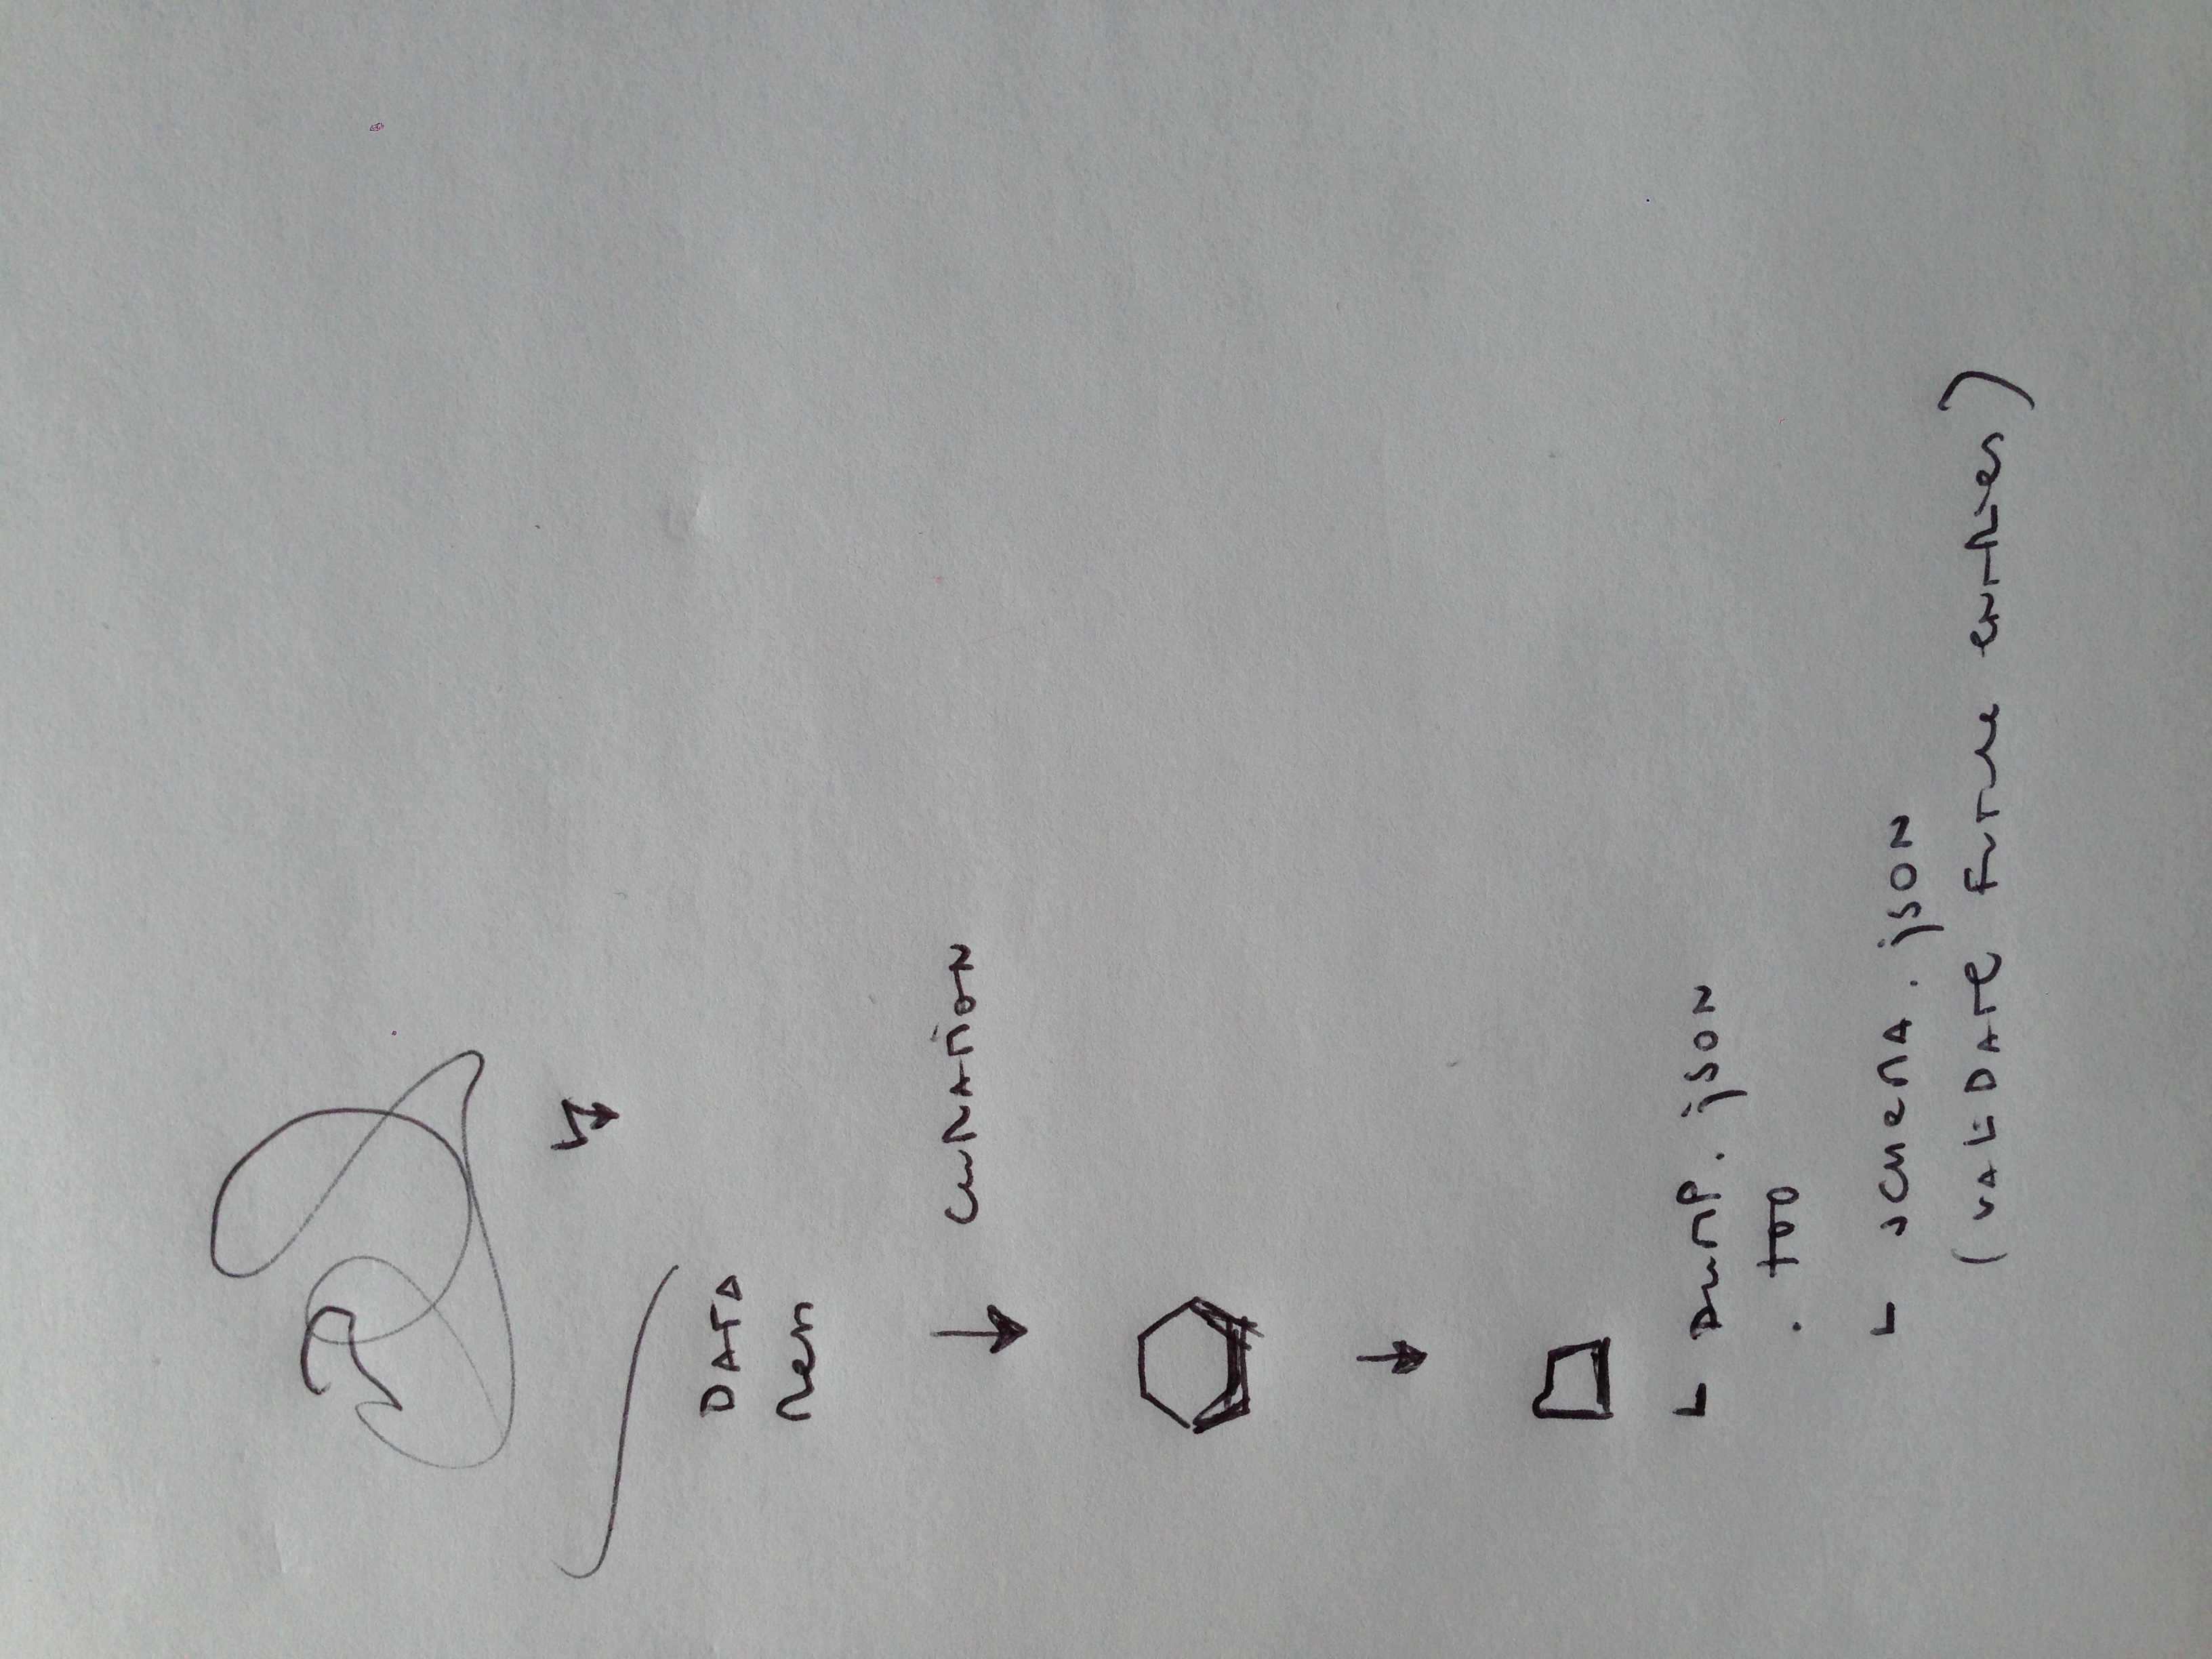 DATA
mess
CURATION
DUMP. json
. too
SCHEMA. json
(VALIDATE FUTURE entries)